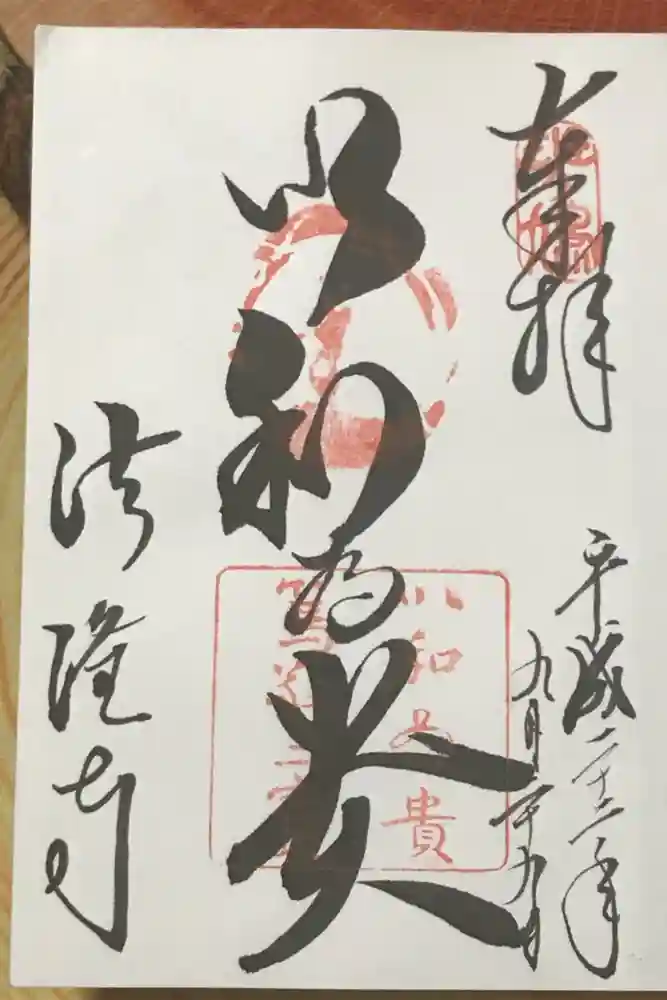 奉拝
平成二十二年
九月二十九日
以和為貴
以和為貴
篤敬三宝
法隆寺